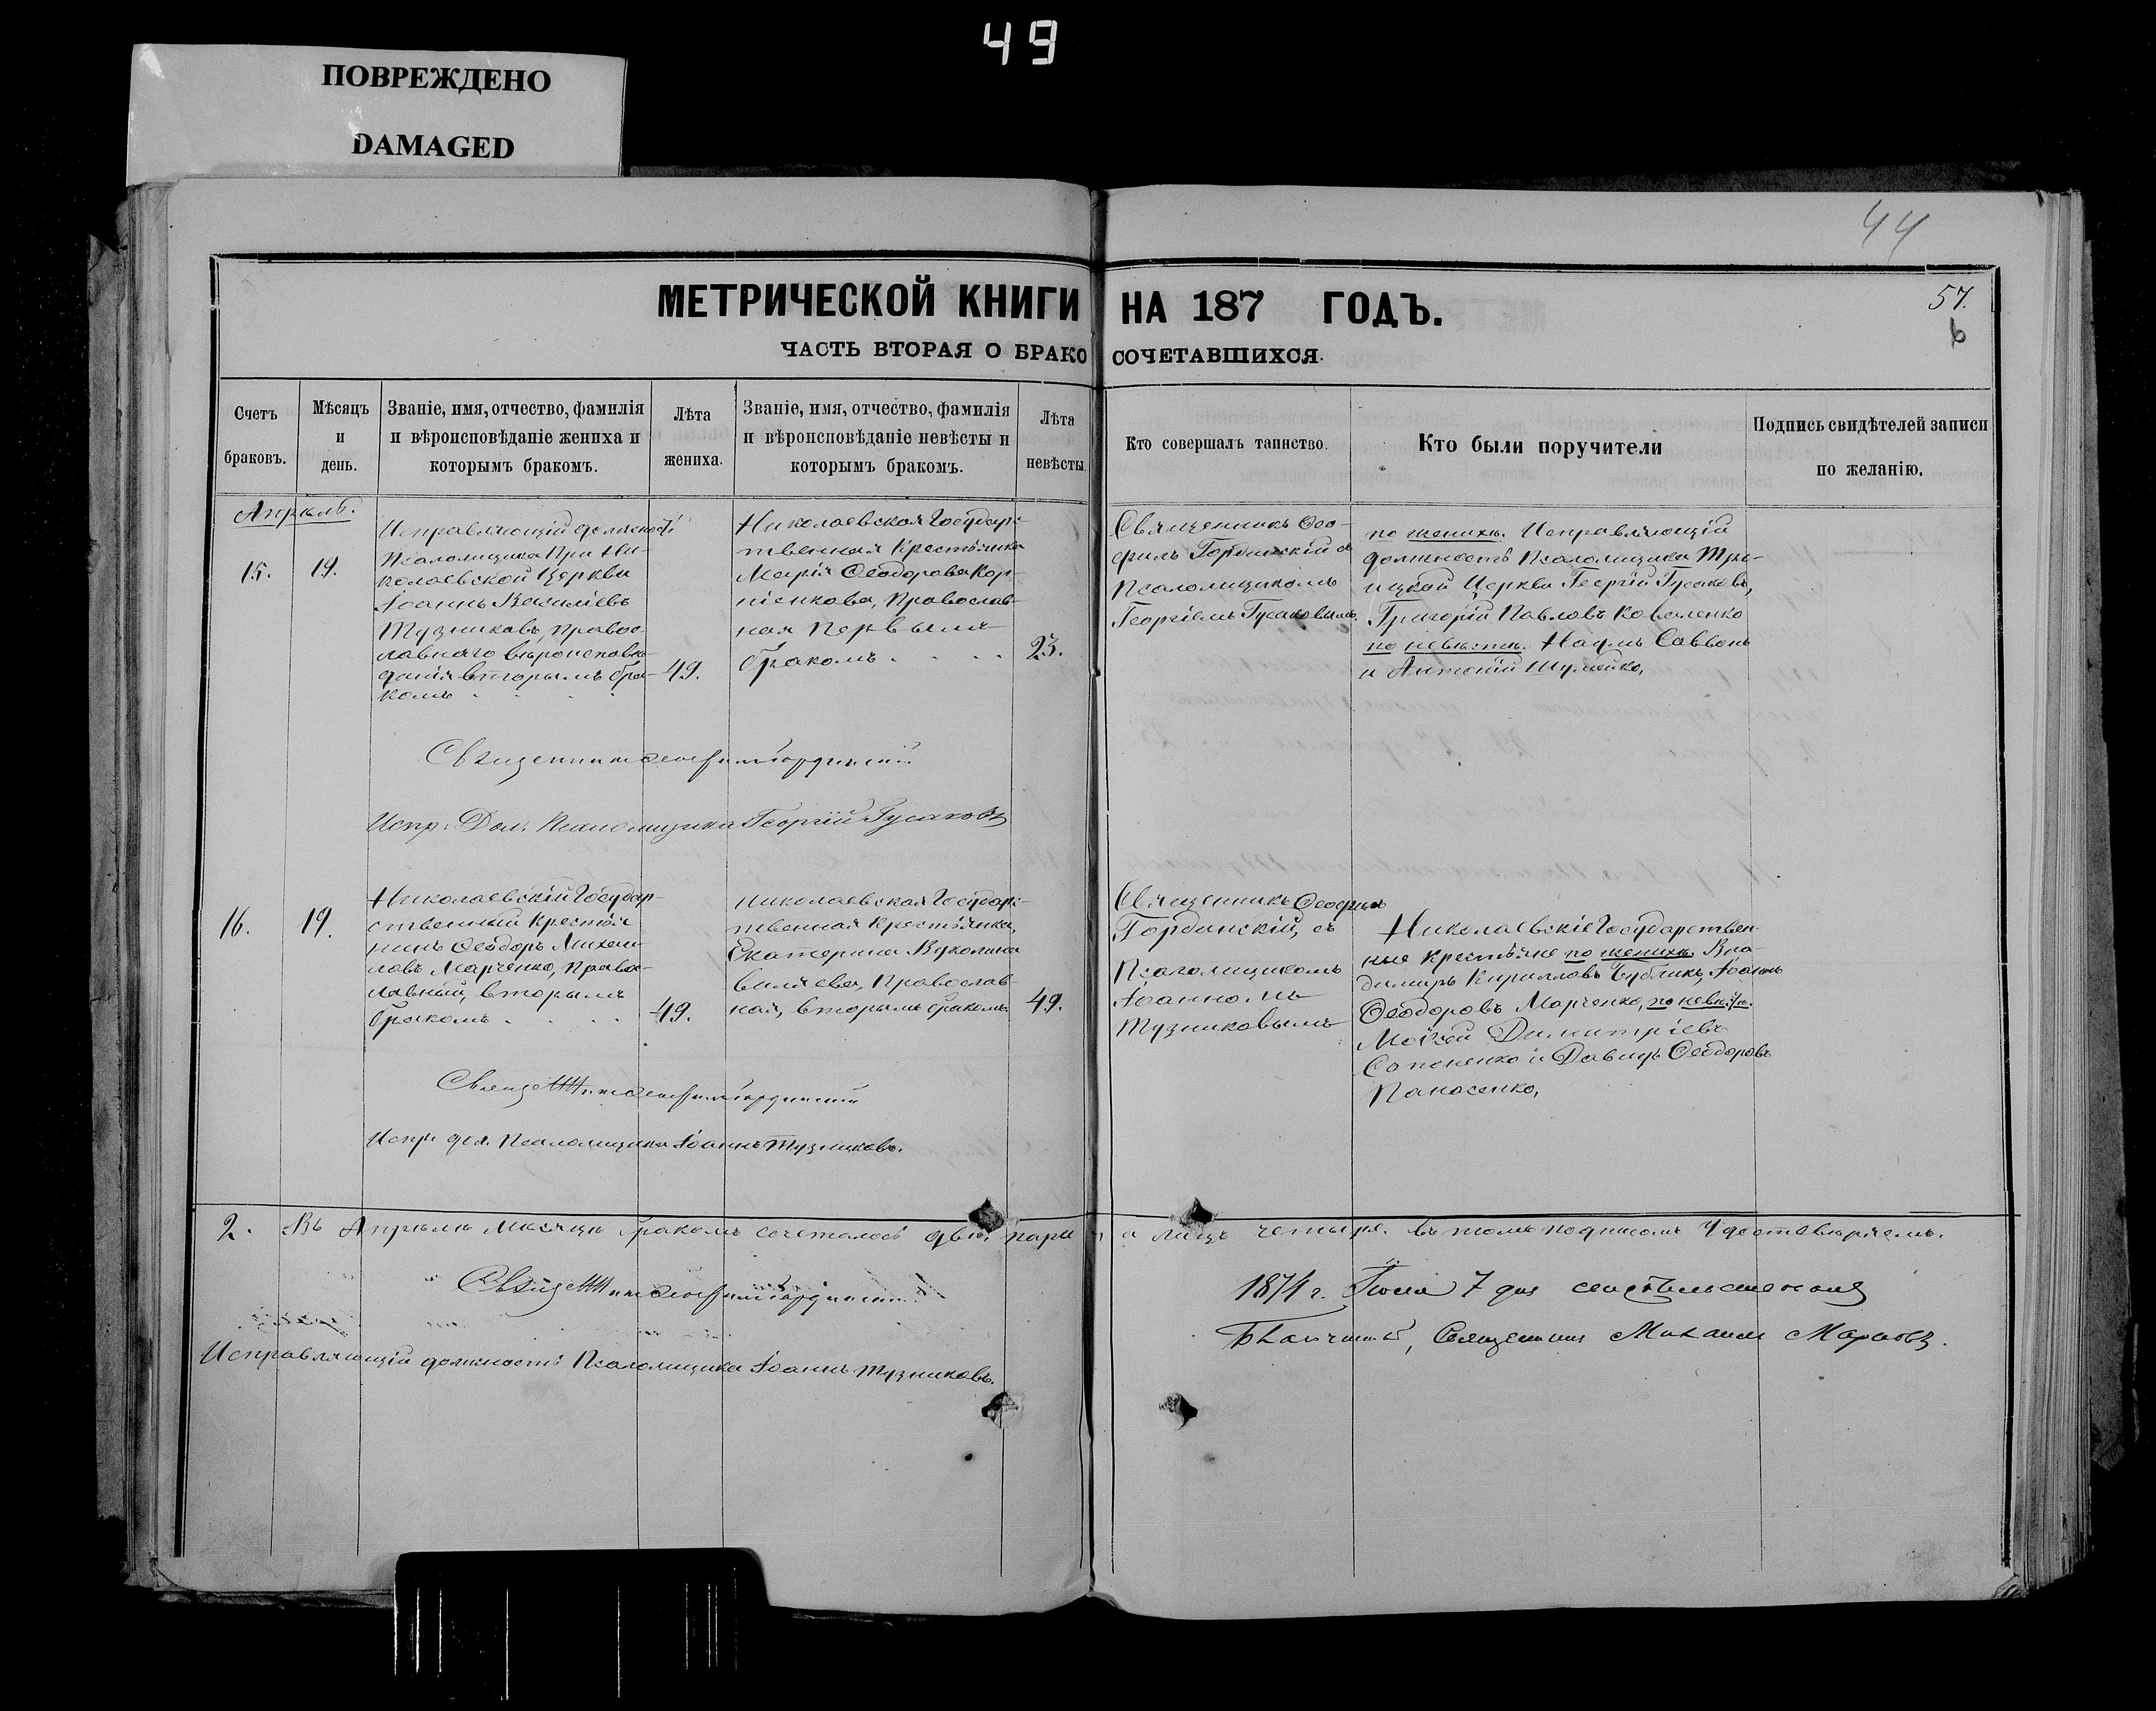 49
ПОВРЕЖДЕНО
DAMAGED
44
МЕТРИЧЕСКОЙ КНИГИ НА 187 ГОДЪ.
57.
6
ЧАСТЬ ВТОРАЯ О БРАКОСОЧЕТАВШИХСЯ.
Счетъ
браковъ.
Мѣсяцъ
и
день.
Званіе, имя, отчество, фамилія
и вѣроисповѣданіе жениха и
которымъ бракомъ.
Лѣта
жениха.
Званіе, имя, отчество, фамилія
и вѣроисповѣданіе невѣсты и
которымъ бракомъ.
Лѣта
невѣсты.
Кто совершалъ таинство.
Кто были поручители
Подпись свидѣтелей записи
по желанію.
Апрѣль.
15.
19.
Исправляющій должность
Псаломщика При Ни-
колаевской Церкви
Іоаннъ Василіевъ
Тузниковъ, право-
славнаго вѣроисповѣ-
данія вторымъ бра-
комъ
49.
Николаевская Государс-
твенная Крестьянка
Марія Ѳеодорова Кор-
ніенкова, Православ-
ная первымъ
бракомъ
23.
Священникъ Ѳео-
филъ Гординскій съ
Псаломщикомъ
Георгіемъ Гусаковымъ
по женихѣ. Исправляющій
должность Псаломщика Тро-
ицкой Церкви Георгій Гусаковъ,
Григорій Павловъ Коваленко
по невѣстѣ. Наумъ Саввонъ
и Антоній Шумейко,
Священникъ Ѳеофилъ Гординскій
Испр. Дол. Псаломщика Георгій Гусаковъ
16.
19.
Николаевскій Государ-
ственный Крестья
нинъ Ѳеодоръ Михаи-
ловъ Марченко, Право-
славный, вторымъ
бракомъ
49.
Николаевская Государс-
твенная Крестьянка,
Екатерина Вуколова
Православ-
ная, вторымъ бракомъ
49.
Священникъ Ѳеофилъ
Гординскій, съ
Псаломщикомъ
Іоанномъ
Тузниковымъ
Николаевскіе Государствен-
ные крестьяне по женихѣ. Вла-
димиръ Кирилловъ Бубликъ, Іоаннъ
Ѳеодоровъ Марченко, по невѣстѣ.
Моѵсей Димитріевъ
Сапоненко и Давидъ Ѳеодоровъ
Панасенко,
Священникъ Ѳеофилъ Гординскій
Испр. дол. Псаломщика Іоаннъ Тузниковъ.
2. Въ Апрѣлѣ Мѣсяцѣ бракомъ сочеталось двѣ пары, а лицъ четыре. въ томъ подписомъ Удостовѣряемъ.
Священникъ Ѳеофилъ Гординскій
Исправляющій должность Псаломщика Іоаннъ Тузниковъ.
1871 г. Іюля 7 дня свидѣтельствовалъ
Благочинный, Священникъ Михаилъ